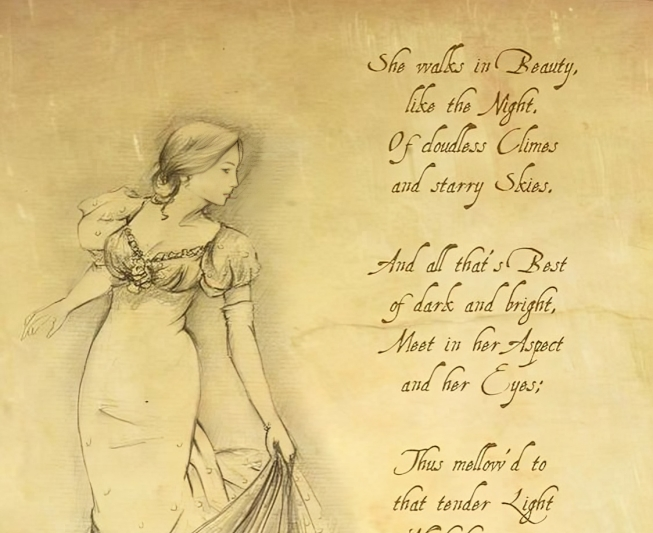 She walks in Beauty,
like the Night.
Of cloudless Climes
and starry Skies.
And all that's Best
of dark and bright,
Meet in her Aspect
and her Eyes;
Thus mellow'd to
that tender Light